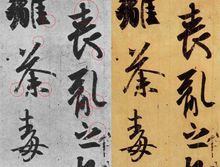 喪亂之
離荼毒
喪亂之
離荼毒